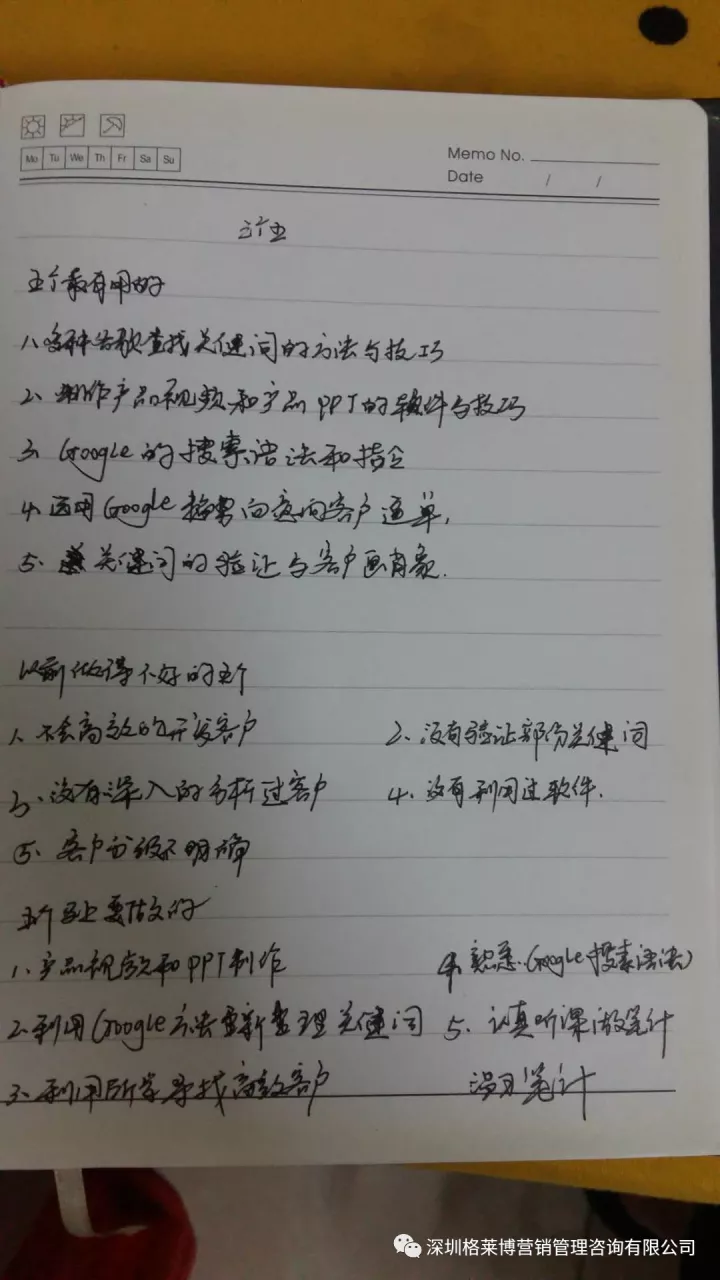 Mo Tu We Th Fr Sa Su
Memo No.
Date / /
三个五
五个最有用的
1、多种谷歌查找关键词的方法与技巧
2、制作产品视频和产品PPT的软件与技巧
3、Google的搜索语法和指令
4、运用Google 客户
5、关键词的验证与客户画肖象.
以前做得不好的五个
1、不会高效的开发客户 2、没有验证部份关键词
3、没有深入的分析过客户 4、没有利用过软件.
5、客户分级不明确
五个马上要做的
1、产品视频和PPT制作 4、熟悉Google搜素语法
2、利用Google方法重新整理关键词 5、认真听课做笔计
3、利用所学寻找高效客户 温习笔计
深圳格莱博营销管理咨询有限公司